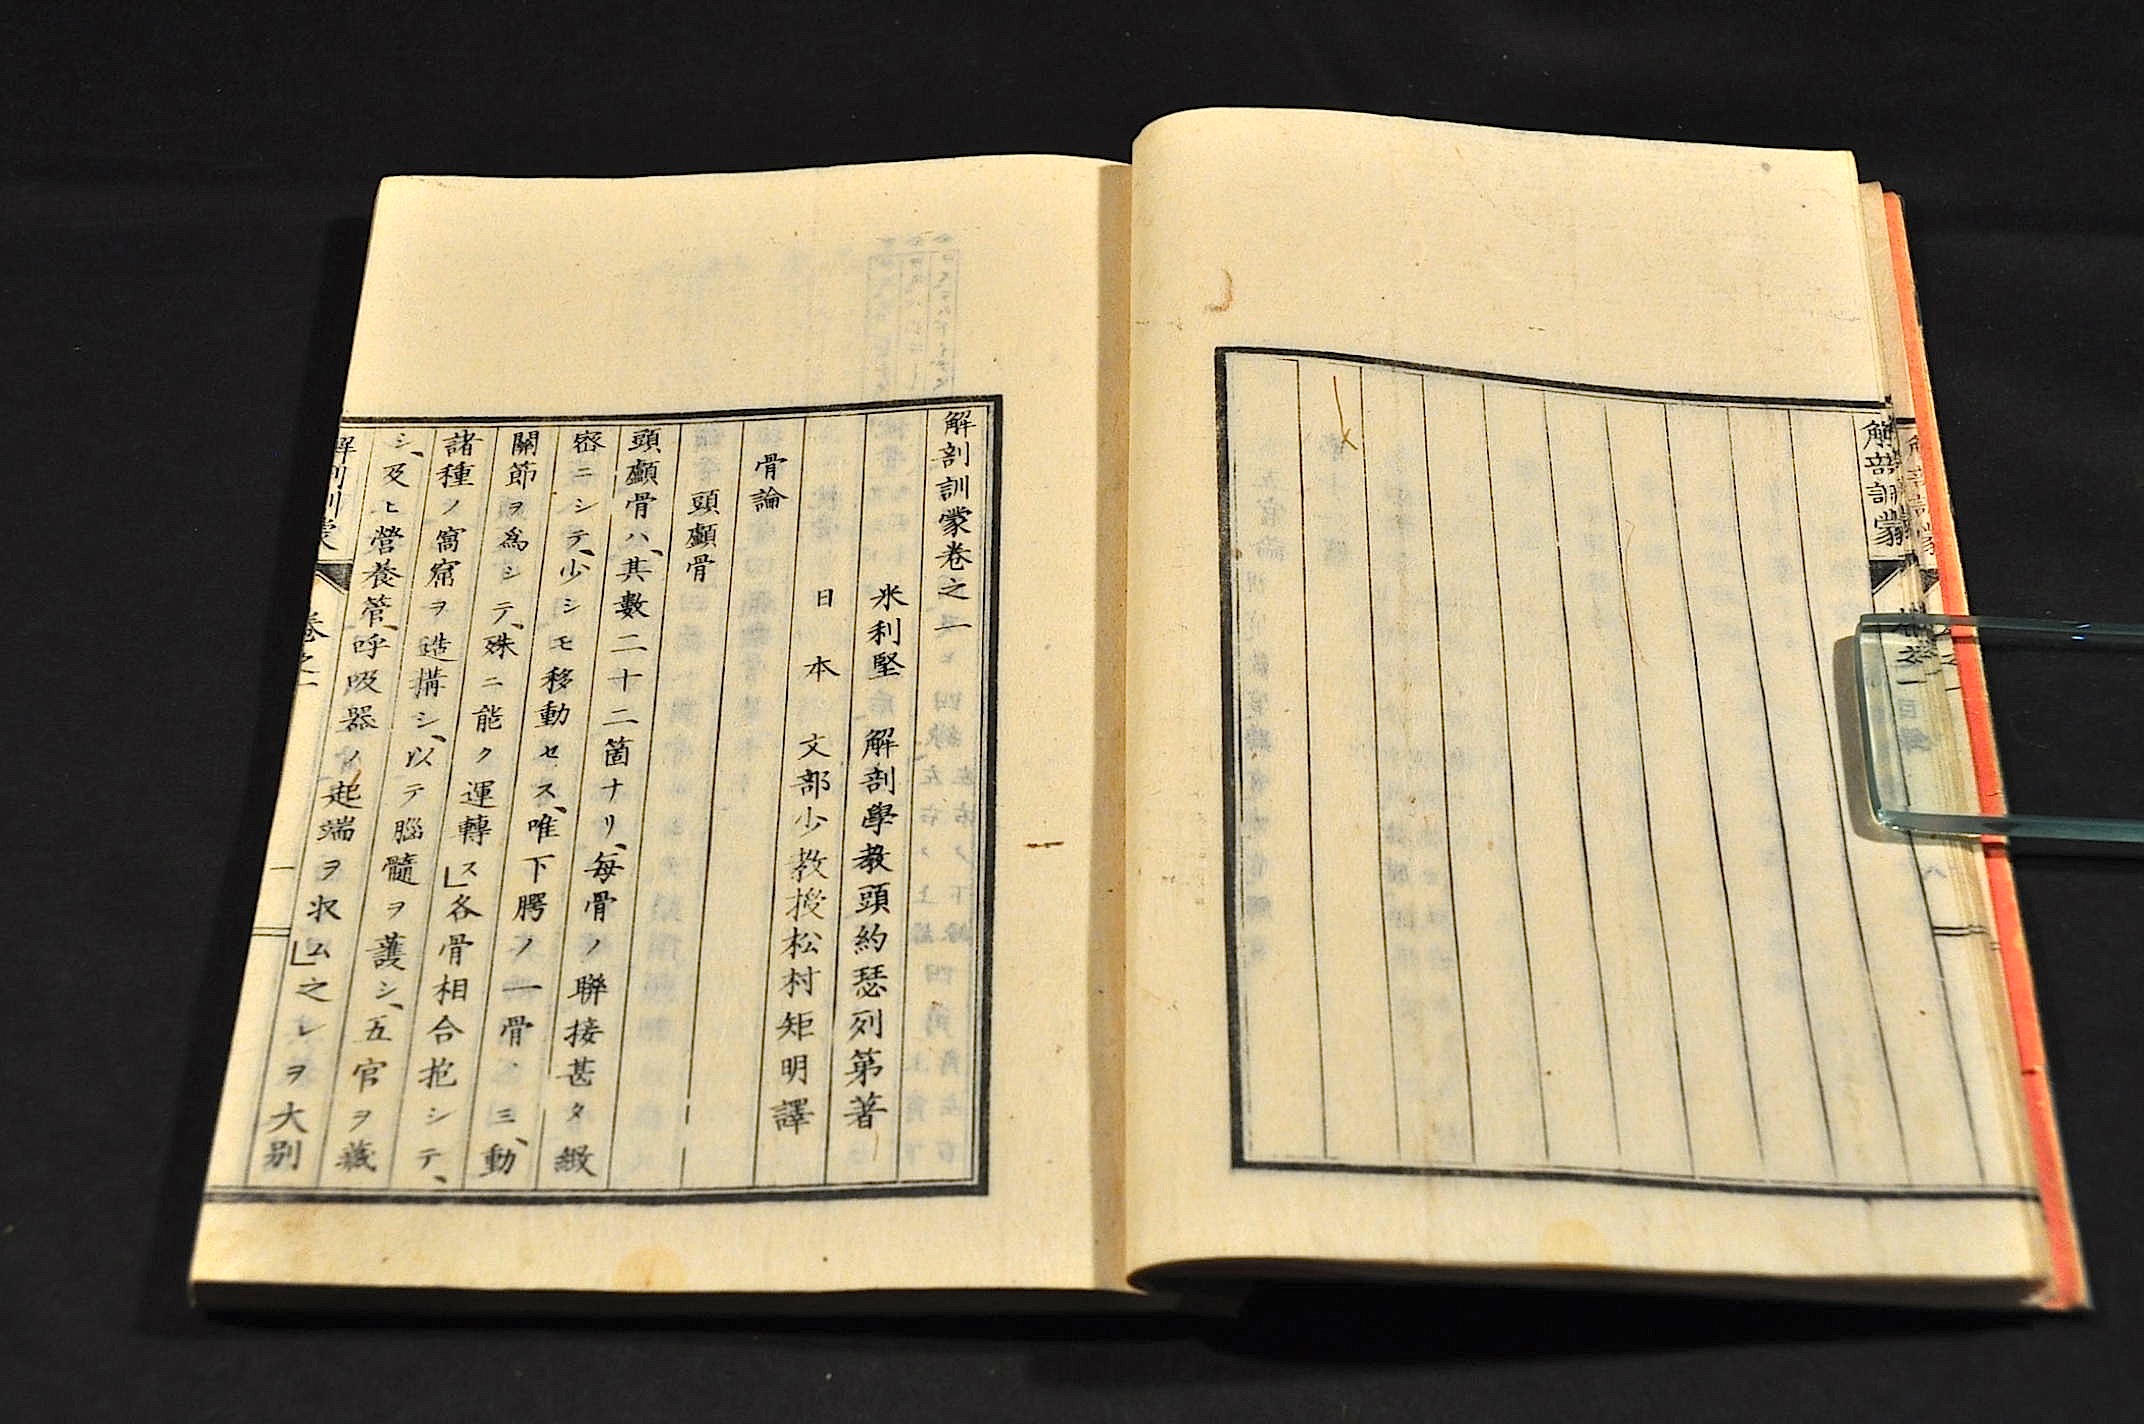 解剖訓蒙
卷之一目錄
解剖訓蒙卷之一
米利堅 解剖學教頭約瑟列第著
日本 文部少教授松村矩明譯
骨論
頭顱骨
頭顱骨ハ、其數二十二箇ナリ、每骨ノ聯接甚タ緻
密ニシテ、少シモ移動セス、唯下腭ノ一骨、ミ、動
關節ヲ為シテ、殊ニ能ク運轉ス」各骨相合抱シテ、
諸種ノ窩窟ヲ造搆シ、以テ腦髓ヲ護シ、五官ヲ藏
シ、及ヒ營養管、呼吸器ノ起端ヲ収ム」之レヲ大別
解剖訓蒙
卷之一
一